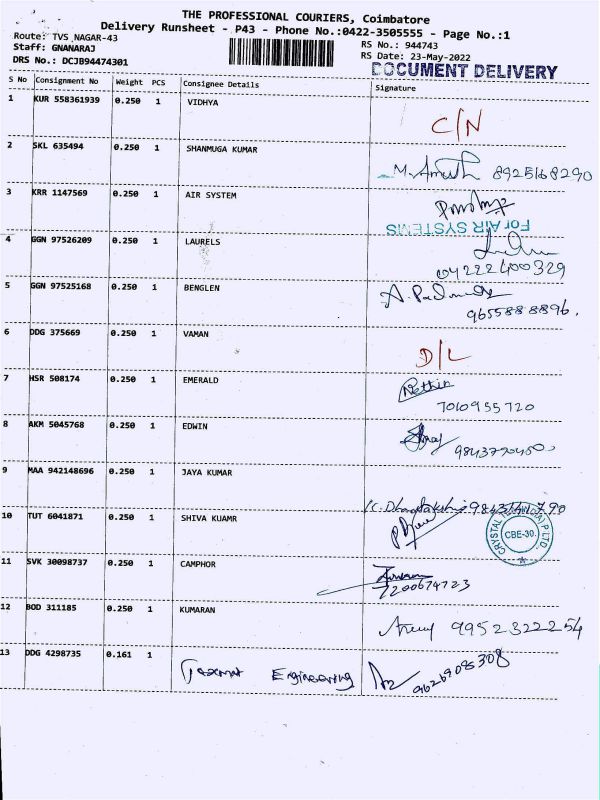 THE PROFESSIONAL COURIERS, Coimbatore
Delivery Runsheet - P43 - Phone No.:0422-3505555 - Page No.:1
Route: TVS NAGAR-43 RS No.: 944743
Staff: GNANARAJ RS Date: 23-May-2022
DRS No.: DCJB94474301 DOCUMENT DELIVERY
S No Consignment No Weight PCS Consignee Details Signature
1 KUR 558361939 0.250 1 VIDHYA
C/N
2 SKL 635494 0.250 1 SHANMUGA KUMAR
8925168290
3 KRR 1147569 0.250 1 AIR SYSTEM
For AIR SYSTEMS
4 GGN 97526209 0.250 1 LAURELS
04222400329
5 GGN 97525168 0.250 1 BENGLEN
9655888896.
6 DDG 375669 0.250 1 VAMAN
D/L
7 HSR 508174 0.250 1 EMERALD
7010955720
8 AKM 5045768 0.250 1 EDWIN
9 MAA 942148696 0.250 1 JAYA KUMAR
10 TUT 6041871 0.250 1 SHIVA KUAMR
CBE-30.
11 SVK 30098737 0.250 1 CAMPHOR
7200674723
12 BOD 311185 0.250 1 KUMARAN
9952322254
13 DDG 4298735 0.161 1
Engineering 96269085308